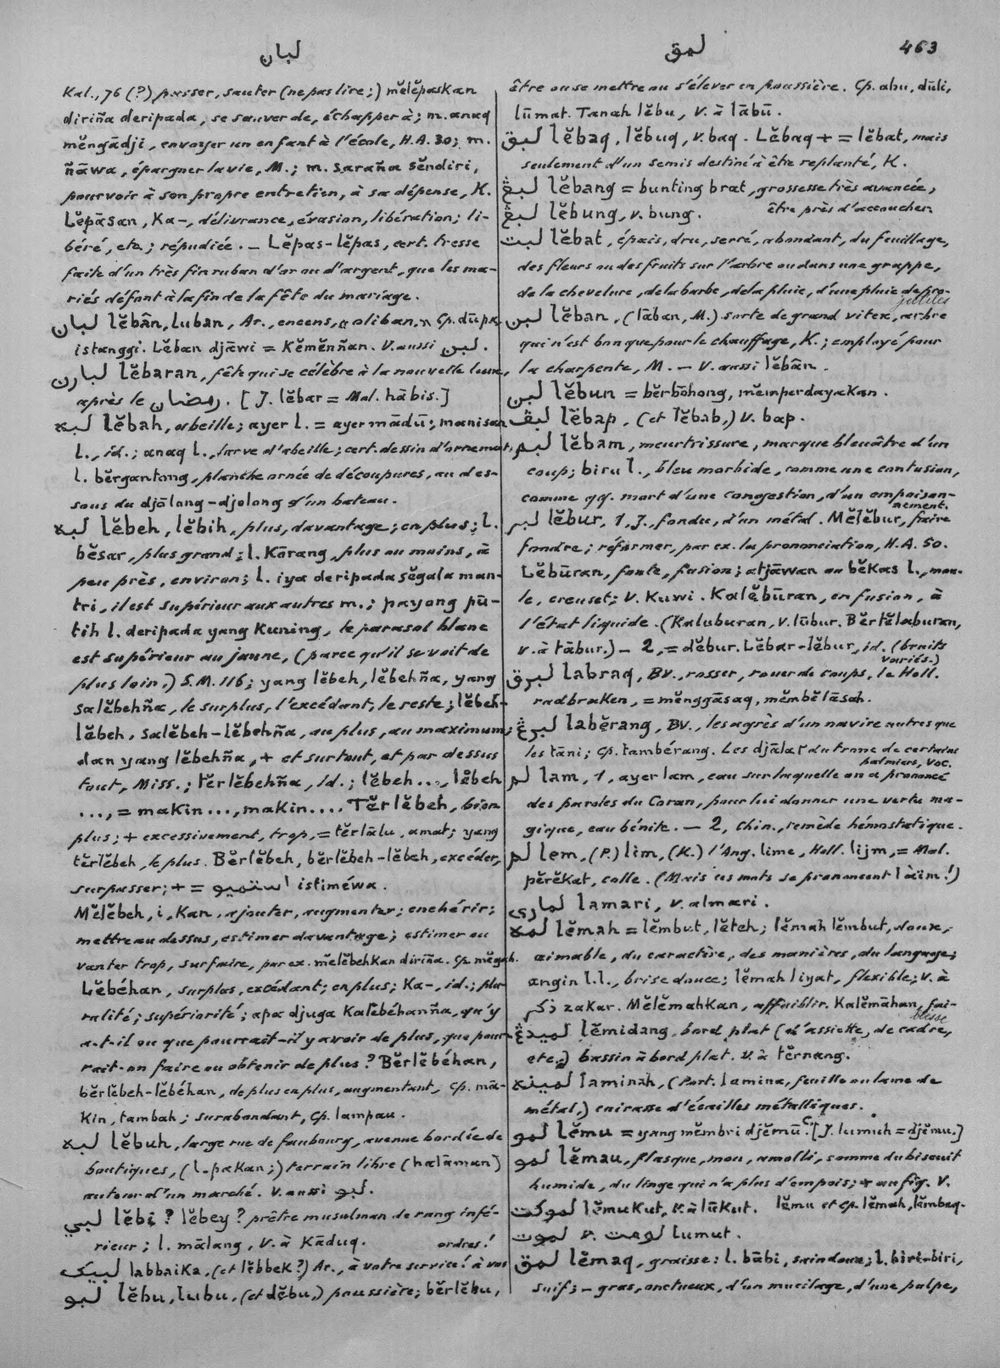 لبان
لمق
463
Kal., 76 (?) passer, sauter (ne pas lire ;) mĕlĕpaskan
diriña deripada, se sauver de, échapper à ; m. anaq
mĕngādji, envoyer un enfant à l'école, H.A. 30; m.
ñāwa, épargner la vie, M.; m. saraña sĕndiri,
pourvoir à son propre entretien, à sa dépense, K.
Lĕpāsan, Ka-, délivrance, évasion, libération; li-
béré, etc.; répudiée. — Lĕpas-lĕpas, cert. tresse
faite d'un très fin ruban d'or ou d'argent, que les ma-
riés défont à la fin de la fête du mariage.
لبان lĕbân, luban, Ar., encens, « oliban, » Cp. dūpa,
istanggi. Lĕban djāwi = Kĕmĕnñan. V. aussi لبن.
لبارن lĕbaran, fête qui se célèbre à la nouvelle lune,
après le رمضان. [J. lĕbar = Mal. hābis.]
لبه lĕbah, abeille; ayer l. = ayer mādū; manisan
l., id.; anaq l., larve d'abeille; cert. dessin d'ornement;
l. bĕrgantong, planche ornée de découpures, au des-
sous du djālang-djolong d'un bateau.
لبه lĕbeh, lĕbih, plus, davantage; en plus; l.
bĕsar, plus grand; l. Kōrang, plus ou moins, à
peu près, environ; l. iya deripada sĕgala man-
tri, il est supérieur aux autres m.; payong pū-
tih l. deripada yang Kuning, le parasol blanc
est supérieur au jaune, (parce qu'il se voit de
plus loin.) S.M. 116; yang lĕbeh, lĕbehña, yang
salĕbehña, le surplus, l'excédant, le reste; lĕbeh-
lĕbeh, salĕbeh-lĕbehña, au plus, au maximum;
dan yang lĕbehña, + et surtout, et par dessus
tout, Miss.; tĕrlĕbehña, id.; lĕbeh..., lĕbeh
..., = makin..., makin.... Tĕrlĕbeh, bien
plus; + excessivement, trop, = tĕrlālu, amat; yang
tĕrlĕbeh, le plus. Bĕrlĕbeh, bĕrlĕbeh-lĕbeh, excéder,
surpasser; + = استميو istiméwa.
Mĕlĕbeh, i, Kan, ajouter, augmenter; enchérir;
mettre au dessus, estimer davantage; estimer ou
vanter trop, surfaire, par ex. mĕlĕbehkan diriña. Cp. mĕgah.
Lĕbéhan, surplus, excédant; en plus; Ka-, id.; plu-
ralité; supériorité; apa djuga Kalĕbéhanña, qu'y
a-t-il ou que pourrait-il y avoir de plus, que pour-
rait-on faire ou obtenir de plus? Bĕrlĕbéhan,
bĕrlĕbeh-lĕbéhan, de plus en plus, augmentant, Cp. mā-
Kin, tambah; surabondant, Cp. lampau.
لبه lĕbuh, large rue de faubourg, avenue bordée de
boutiques, (l. pakan;) terrain libre (halāman)
autour d'un marché. V. aussi لبو.
لبي lĕbi? lĕbey? prêtre musulman de rang infé-
rieur; l. mālang, V. à Kāduq.
ordres!
لبيک labbaika, (et lĕbbek?) Ar., à votre service! à vos
لبو lĕbu, lubu, (et dĕbu,) poussière; bĕrlĕbu,
être ou se mettre ou s'élever en poussière. Cp. abu, dūli,
lūmat. Tanah lĕbu, V. à lābū.
لبق lĕbaq, lĕbuq, v. baq. Lĕbaq + = lĕbat, mais
seulement d'un semis destiné à être replanté, K.
لبڠ lĕbang = bunting brat, grossesse très avancée,
être près d'accoucher.
لبڠ lĕbung, v. bung.
لبت lĕbat, épais, dru, serré, abondant, du feuillage,
des fleurs ou des fruits sur l'arbre ou dans une grappe,
de la chevelure, de la barbe, de la pluie, d'une pluie de pro-
jectiles
لبن lĕban, (lāban, M.) sorte de grand vitex, arbre
qui n'est bon que pour le chauffage, K.; employé pour
la charpente, M. — V. aussi lĕbân.
لبن lĕbun = bĕrbōhong, mĕmperdayakan.
لبڤ lĕbap, (et lĕbab,) V. bap.
لبم lĕbam, meurtrissure, marque bleuâtre d'un
coup; biru l., bleu morbide, comme une contusion,
comme qq. mort d'une congestion, d'un empoison-
nement.
لبر lĕbur, 1, J., fondu, d'un métal. Mĕlĕbur, faire
fondre; réformer, par ex. la prononciation, H.A. 50.
Lĕbūran, fonte, fusion; atjāwan ou bĕkas l., mou-
le, creuset; V. Kuwi. Kalĕbūran, en fusion, à
l'état liquide. (Kaluburan, V. lūbur. Bĕrtĕlaburan,
v. à tābur.) — 2, = dĕbur. Lĕbar-lĕbur, id. (bruits
variés.)
لبرق labraq, Bv., rosser, rouer de coups, le Holl.
radbraken, = mĕnggāsaq, mĕmbĕlāsah.
لبرڠ labĕrang, Bv., les agrès d'un navire autres que
les tāni; Cp. tambérang. Les djālat du tronc de certains
palmiers, voc.
لم lam, 1, ayer lam, eau sur laquelle on a prononcé
des paroles du Coran, pour lui donner une vertu ma-
gique, eau bénite. — 2, Chin., remède hémostatique.
لم lem, (P.) lim, (K.) l'Ang. lime, Holl. lijm, = Mal.
pĕrĕkat, colle. (Mais ces mots se prononcent làïm!)
لماري lamari, v. almari.
لمه lĕmah = lĕmbut, lĕteh; lĕmah lĕmbut, doux,
aimable, du caractère, des manières, du langage;
angin l.l., brise douce; lĕmah liyat, flexible; V. à
ذكر zakar. Mĕlĕmahkan, affaiblir. Kalĕmāhan, fai-
blesse
لميدڠ lĕmidang, bord plat (d'assiette, de cadre,
etc.;) bassin à bord plat. V. à tĕrnang.
لمينه laminah, (Port. lamina, feuille ou lame de
métal,) cuirasse d'écailles métalliques.
لمو lĕmu = yang mĕmbri djĕmū. [J. lumuh = djĕmu.]
لمو lĕmau, flasque, mou, amolli, comme du biscuit
humide, du linge qui n'a plus d'empois; + au fig. V.
لموکت lĕmukut, V. à lūkut. lĕmu et cp. lĕmah, lĕmbaq.
لموت v. لومت lumut.
لمق lĕmaq, graisse: l. bābi, saindoux; l. biri-biri,
suif; — gras, onctueux, d'un mucilage, d'une pulpe,